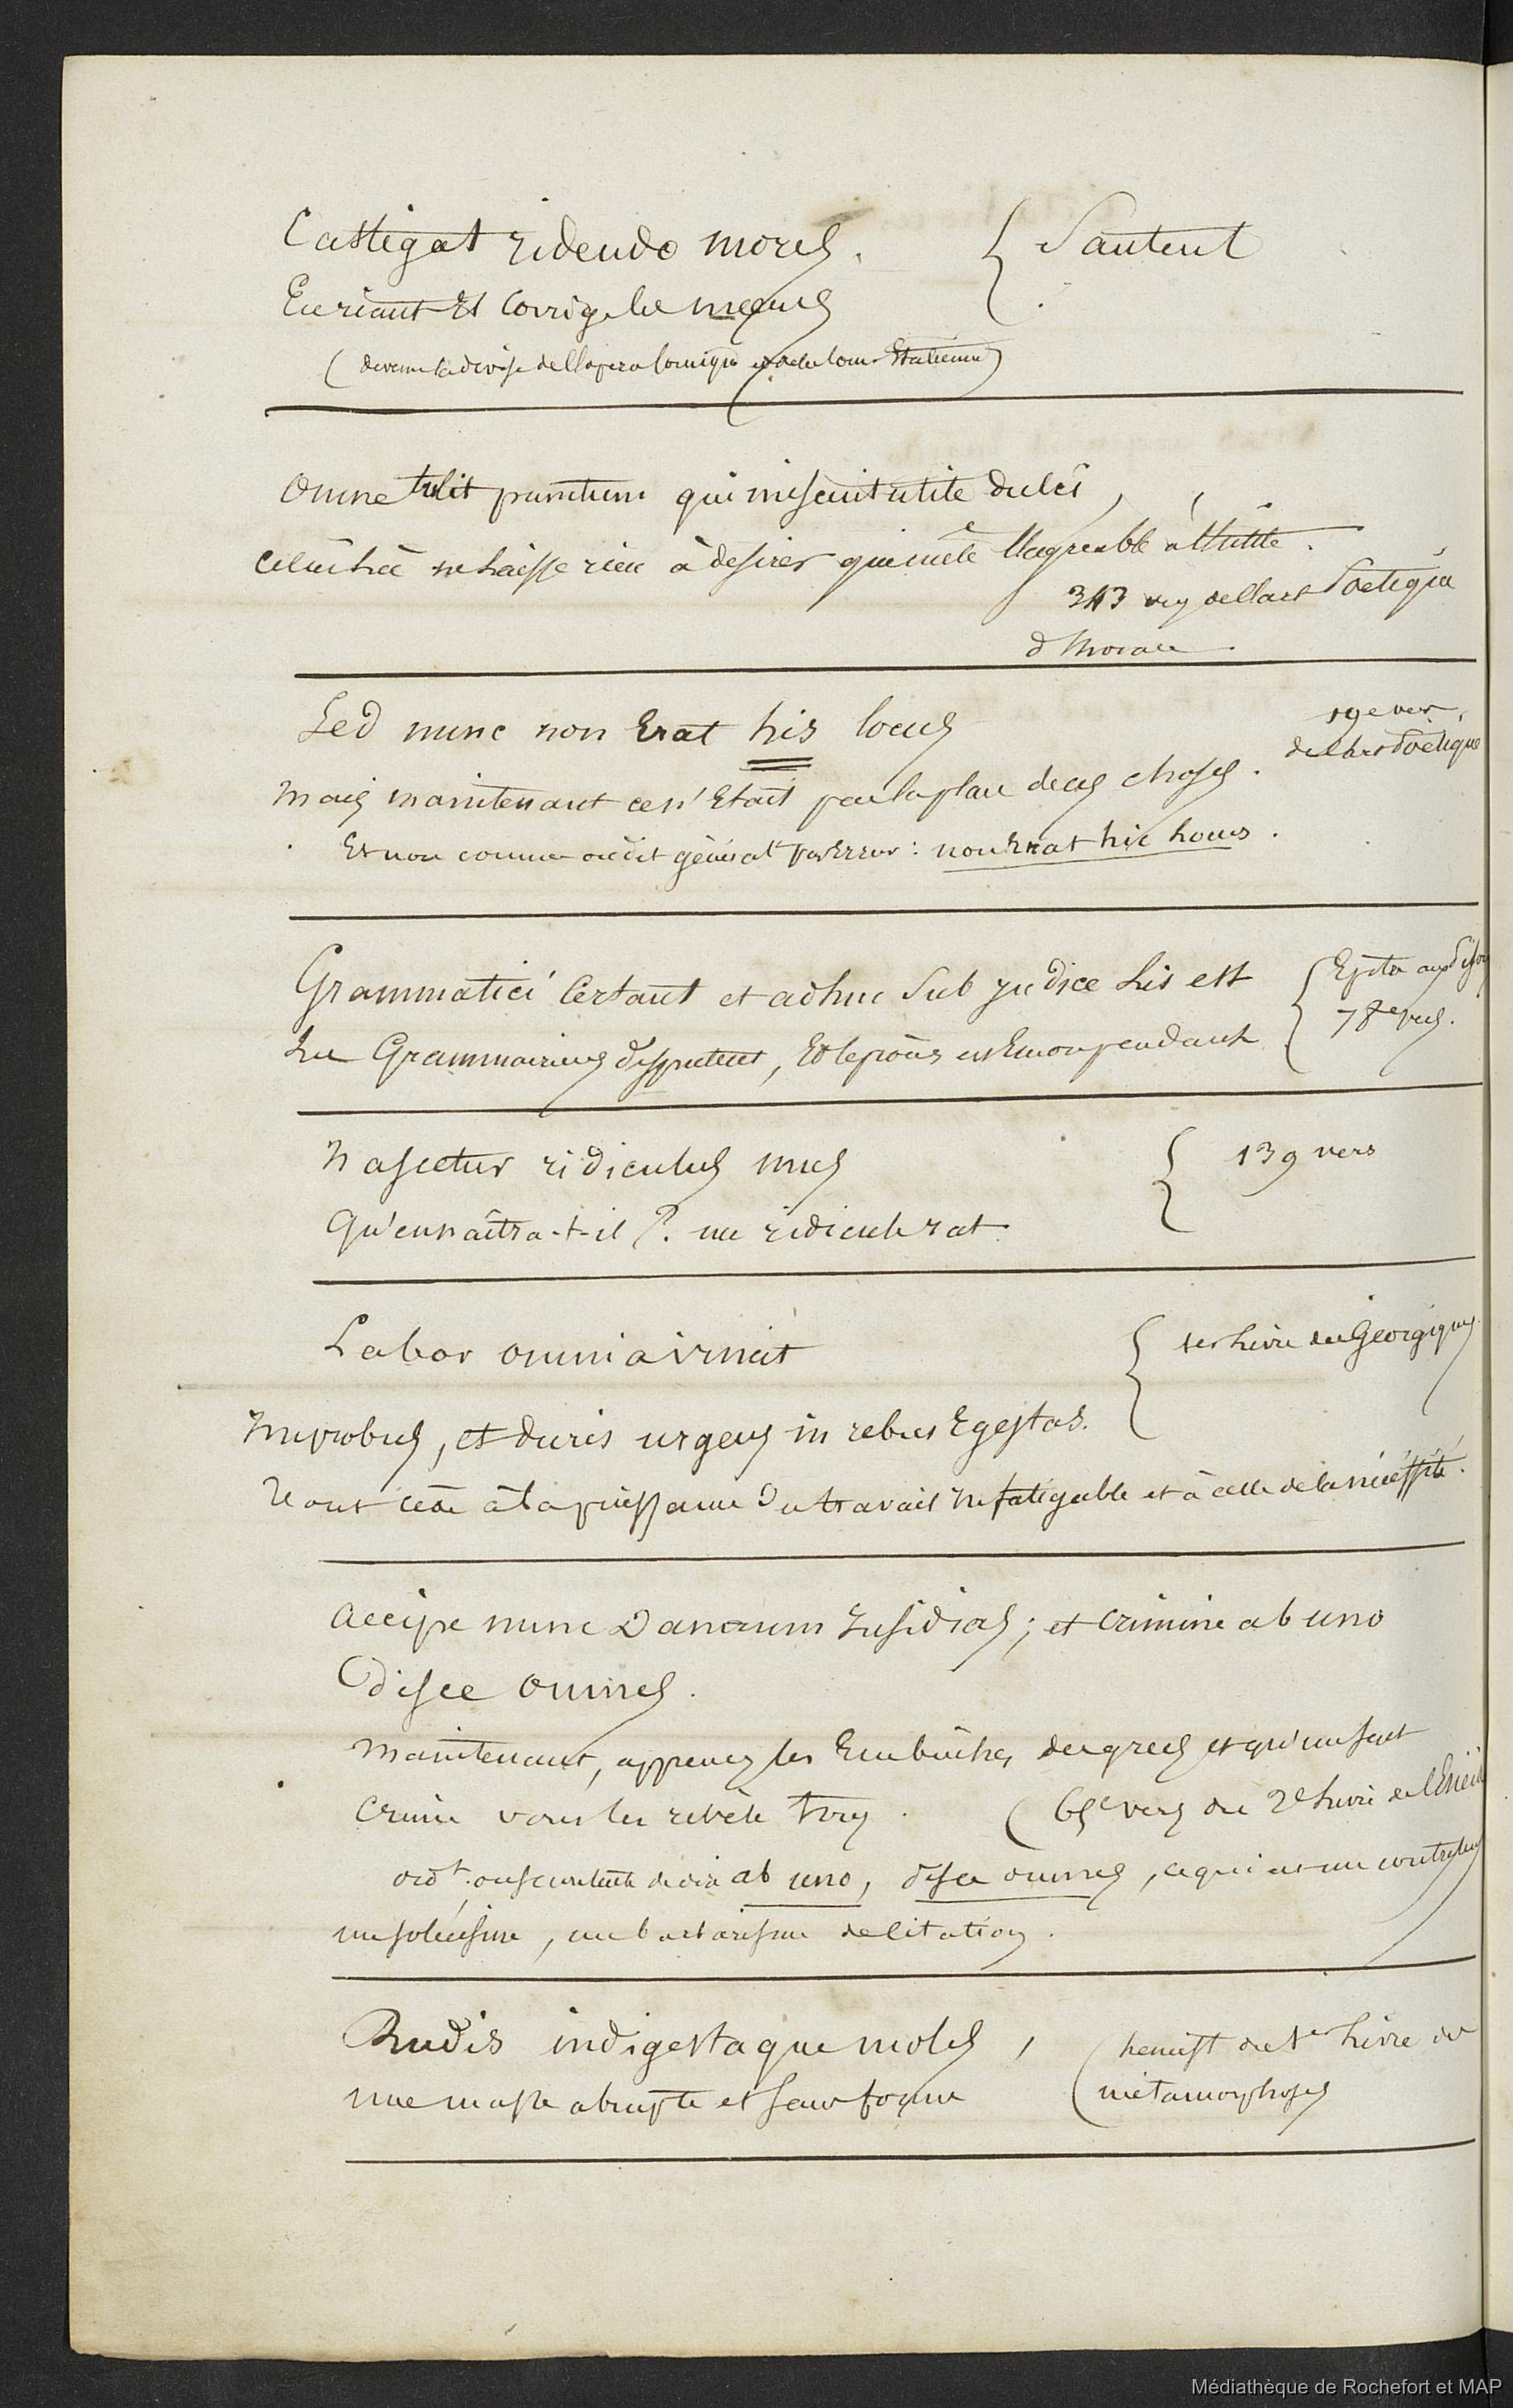 Castigat ridendo mores. { Santeul
En riant il corrige les mœurs
(devenue la devise de l'opera comique et de la com. Italienne)
Omne tulit punctum qui miscuit utile dulci,
Celui-là ne laisse rien à desirer qui mêle l'agréable à l'utile.
343 vers de l'art Poetique
d'horace.
Sed nunc non Erat his locus
19e vers
de l'art Poetique
Mais maintenant ce n'Etait pas la place de ces choses.
Et non comme on dit général par Erreur : non Erat hic locus.
Grammatici Certant et adhuc Sub judice Lis est { Epitre aux Pisons
Les Grammairiens disputent, Et le procès est Encore pendant 78e vers.
Nascetur ridiculus mus { 139 vers
Qu'en naîtra-t-il ? un ridicule rat
Labor omnia vincit { 1er Livre des Georgiques
Improbus, et duris urgens in rebus Egestas.
Tout cède à la puissance du travail Infatigable et à celle de la nécéssité.
Accipe nunc Danaum Insidias ; et crimine ab uno
disce omnes.
Maintenant, apprenez les Embûches des grecs et qu'un seul
Crime vous les révèle tous. (65e vers du 2e Livre de l'Enéide
ordt. on se contente de dire ab uno, disce omnes, ce qui est un contresens
un solécisme, un barbarisme de citation.
Rudis indigestaque moles, (hemist du 1er Livre des
une masse abrupte et sans forme métamorphoses
Médiathèque de Rochefort et MAP